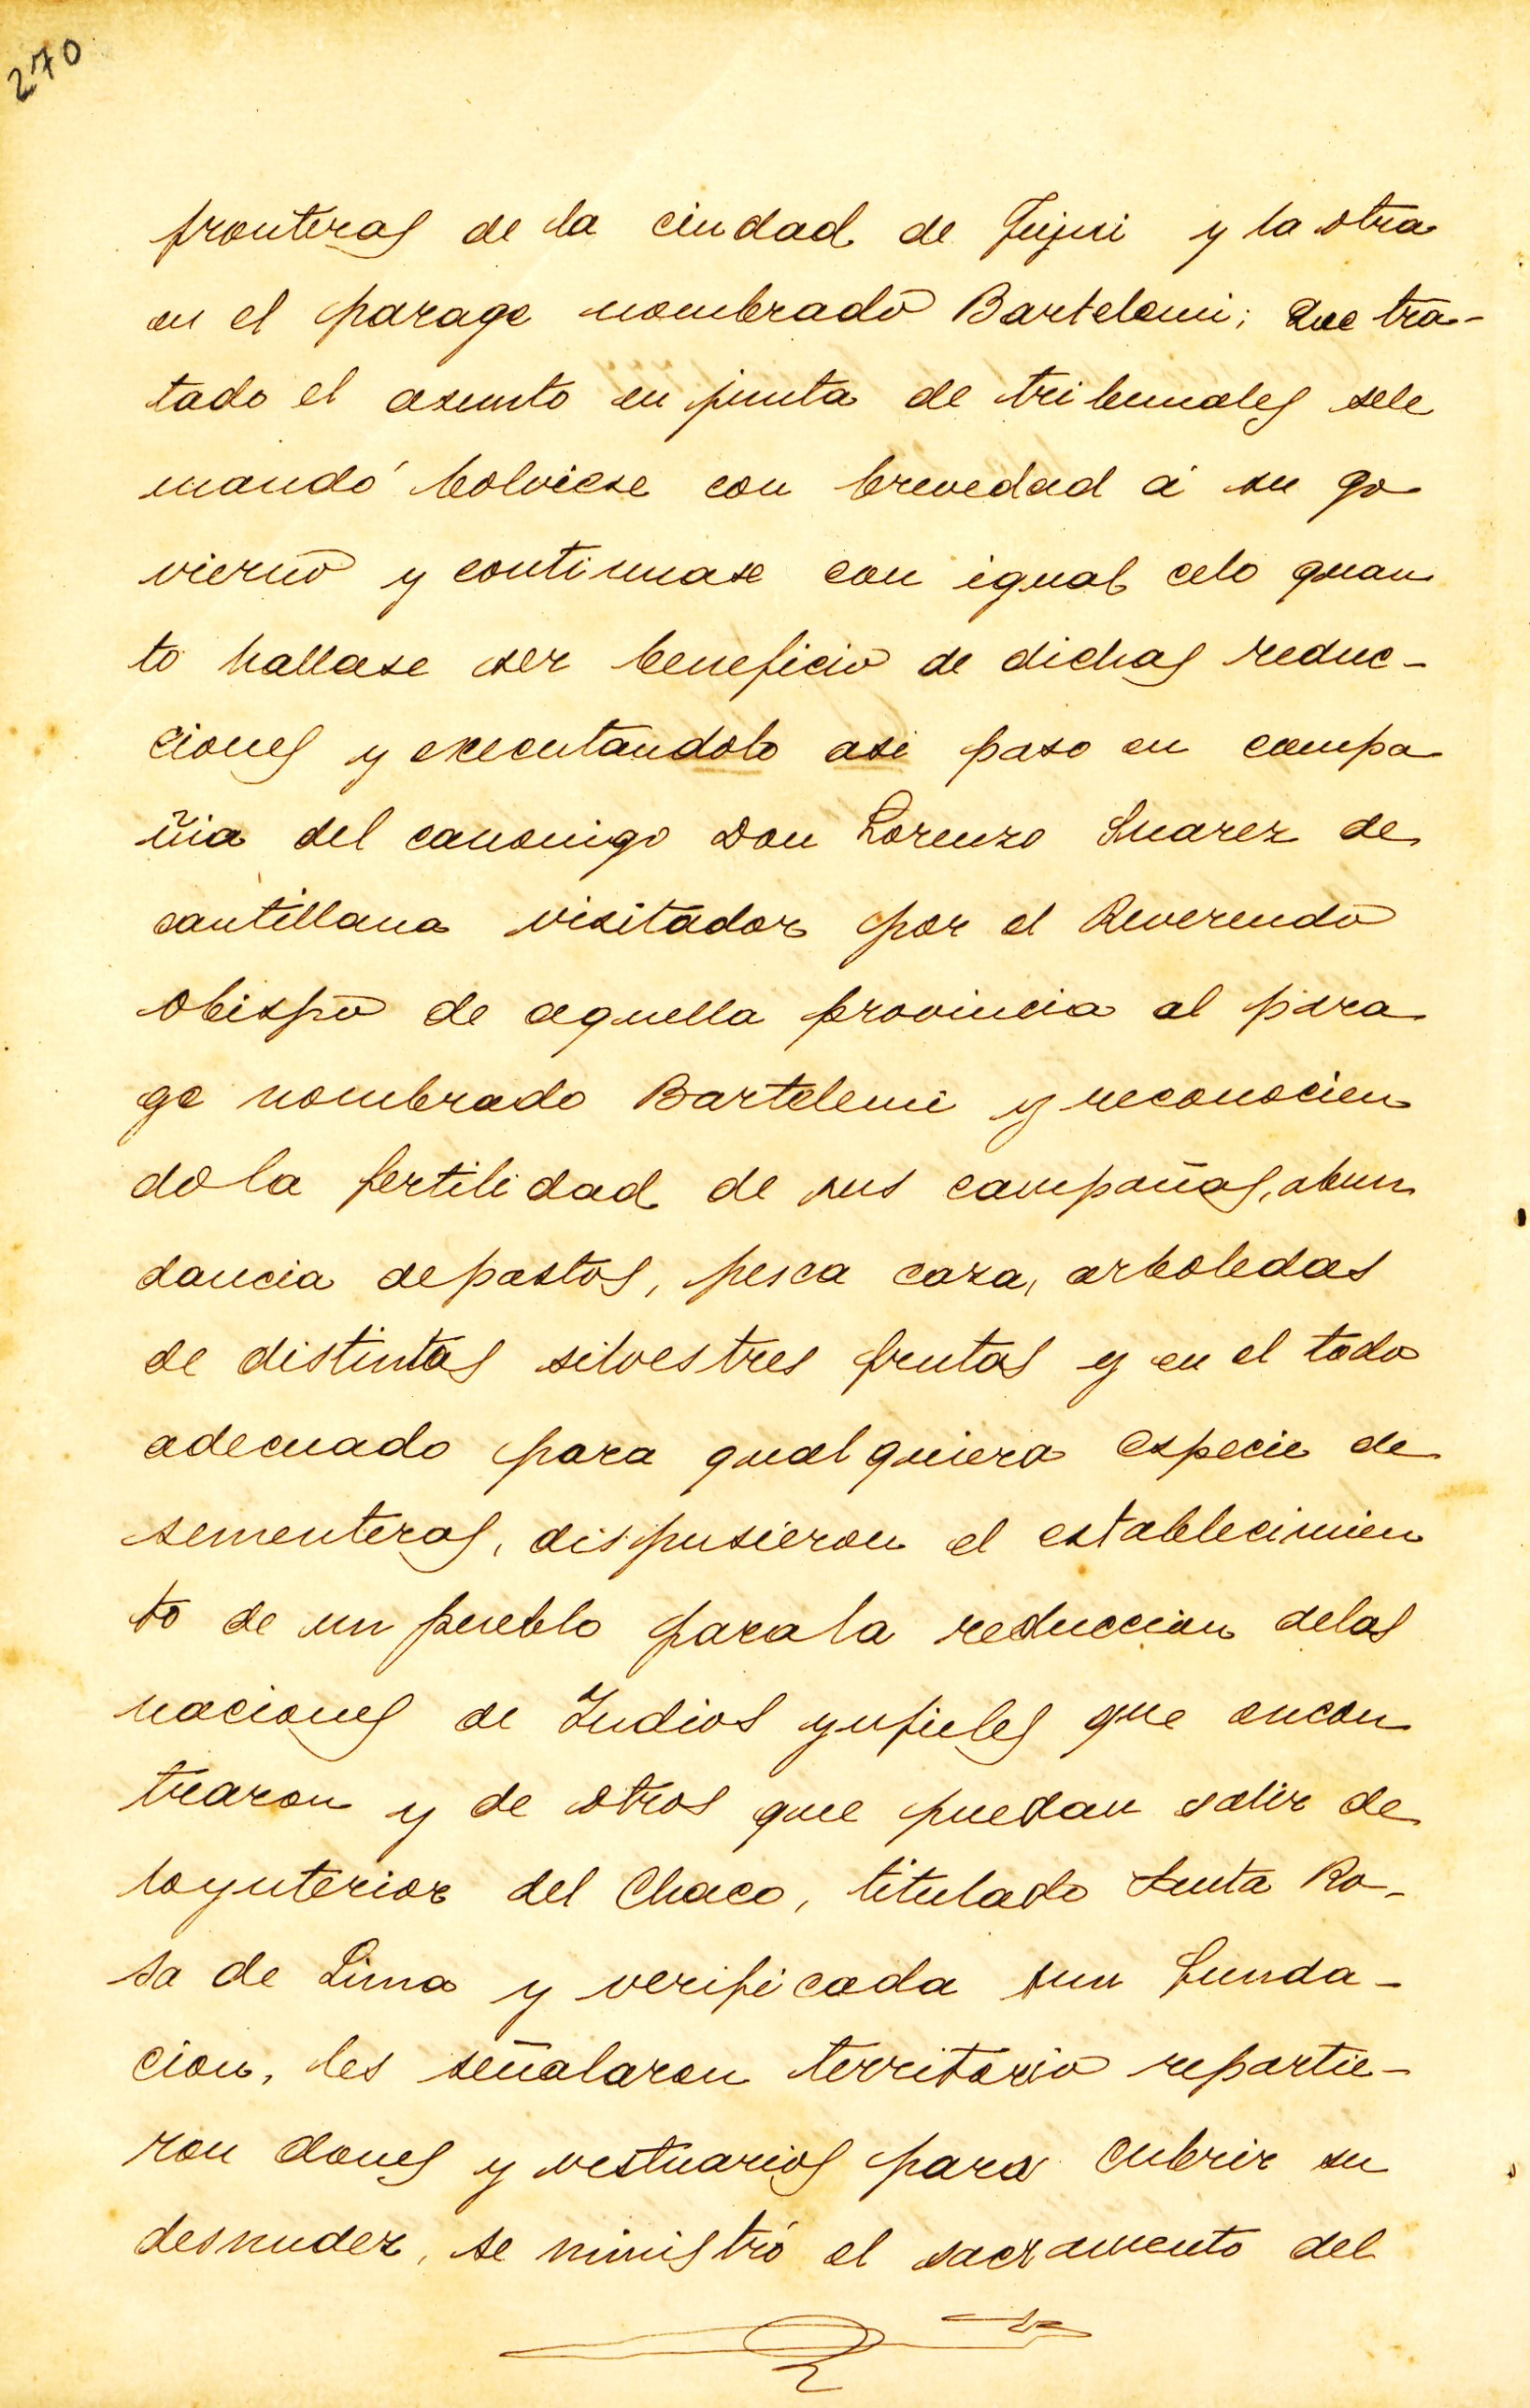 270
fronteras de la ciudad de Jujui y la otra
en el parage nombrado Bartelemi; Que tra-
tado el asunto en junta de tribunales sele
mandó bolviese con brevedad á su go
vierno y continuase con igual celo quan
to hallase ser beneficio de dichas reduc-
ciones y executandolo asi paso en compa
ñia del canonigo Don Lorenzo Suarez de
santillana visitador por el Reverendo
Obispo de aquella provincia al para
ge nombrado Bartelemi y reconocien
do la fertilidad de sus campañas, abun
dancia depastos, pesca caza, arboledas
de distintas silvestres frutas y en el todo
adecuado para qualquiera especie de
sementeras, dispusieron el establecimien
to de un pueblo parala reduccion delas
naciones de Indios ynfieles que encon
traron y de otros que puedan salir de
loynterior del Chaco, titulado Santa Ro-
sa de Lima y verificada sun funda-
cion, les señalaron territorio repartie-
ron dones y vestuarios para cubrir su
desnudez, se ministró el sacramento del